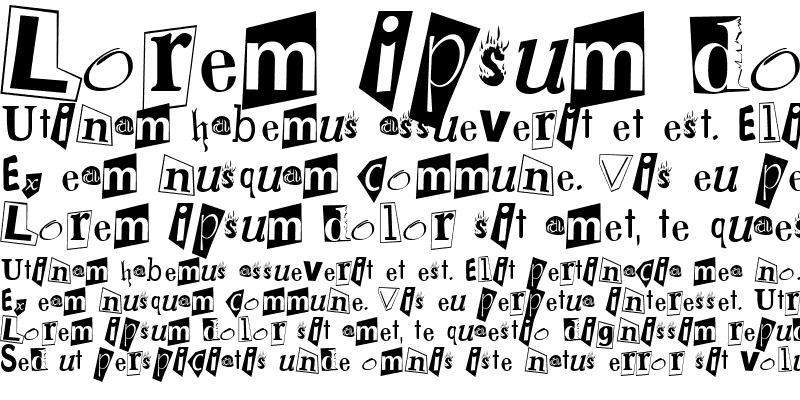 Lorem ipsum do
Utinam habemus assueverit et est. Eli
Ex eam nusquam commune. Vis eu pe
Lorem ipsum dolor sit amet, te quaes
Utinam habemus assueverit et est. Elit pertinacia mea no.
Ex eam nusquam commune. Vis eu perpetua interesset. Utr
Lorem ipsum dolor sit amet, te quaestio dignissim repud
Sed ut perspiciatis unde omnis iste natus error sit volu